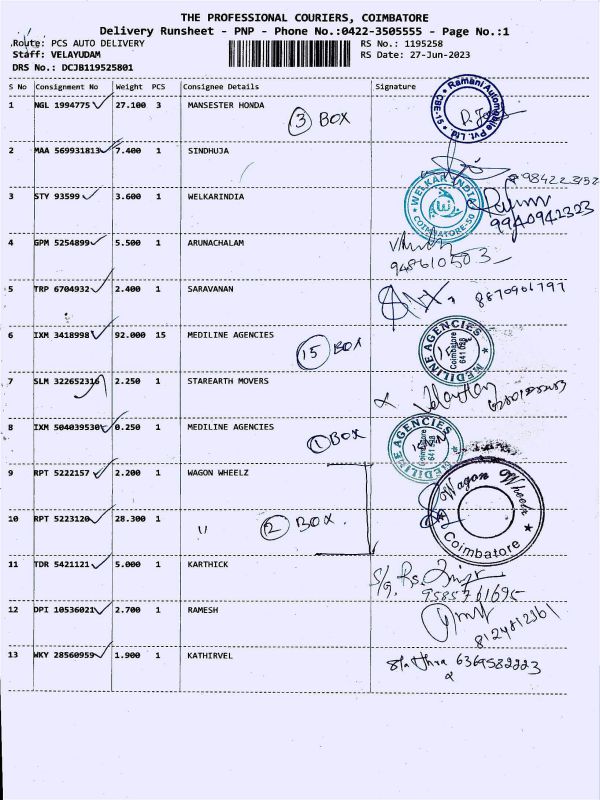 THE PROFESSIONAL COURIERS, COIMBATORE
Delivery Runsheet - PNP - Phone No.:0422-3505555 - Page No.:1
Route: PCS AUTO DELIVERY RS No.: 1195258
Staff: VELAYUDAM RS Date: 27-Jun-2023
DRS No.: DCJB119525801
S No Consignment No Weight PCS Consignee Details Signature
1 NGL 1994775 27.100 3 MANSESTER HONDA
3 BOX
Ramani Automobile Pvt. Ltd. CBE-15
2 MAA 569931813 7.400 1 SINDHUJA
3 STY 93599 3.600 1 WELKARINDIA
WELKAR INDIA COIMBATORE-50
9940942323
4 GPM 5254899 5.500 1 ARUNACHALAM
5 TRP 6704932 2.400 1 SARAVANAN
8870961797
6 IXM 3418998 92.000 15 MEDILINE AGENCIES
15 BOX
MEDILINE AGENCIES Coimbatore
7 SLM 322652316 2.250 1 STAREARTH MOVERS
8 IXM 504039530 0.250 1 MEDILINE AGENCIES
1 BOX
MEDILINE AGENCIES Coimbatore
9 RPT 5222157 2.200 1 WAGON WHEELZ
Wagon Wheelz Coimbatore
10 RPT 5223120 28.300 1 "
2 BOX
11 TDR 5421121 5.000 1 KARTHICK
12 DPI 10536021 2.700 1 RAMESH
13 WKY 28560959 1.900 1 KATHIRVEL
6369582223